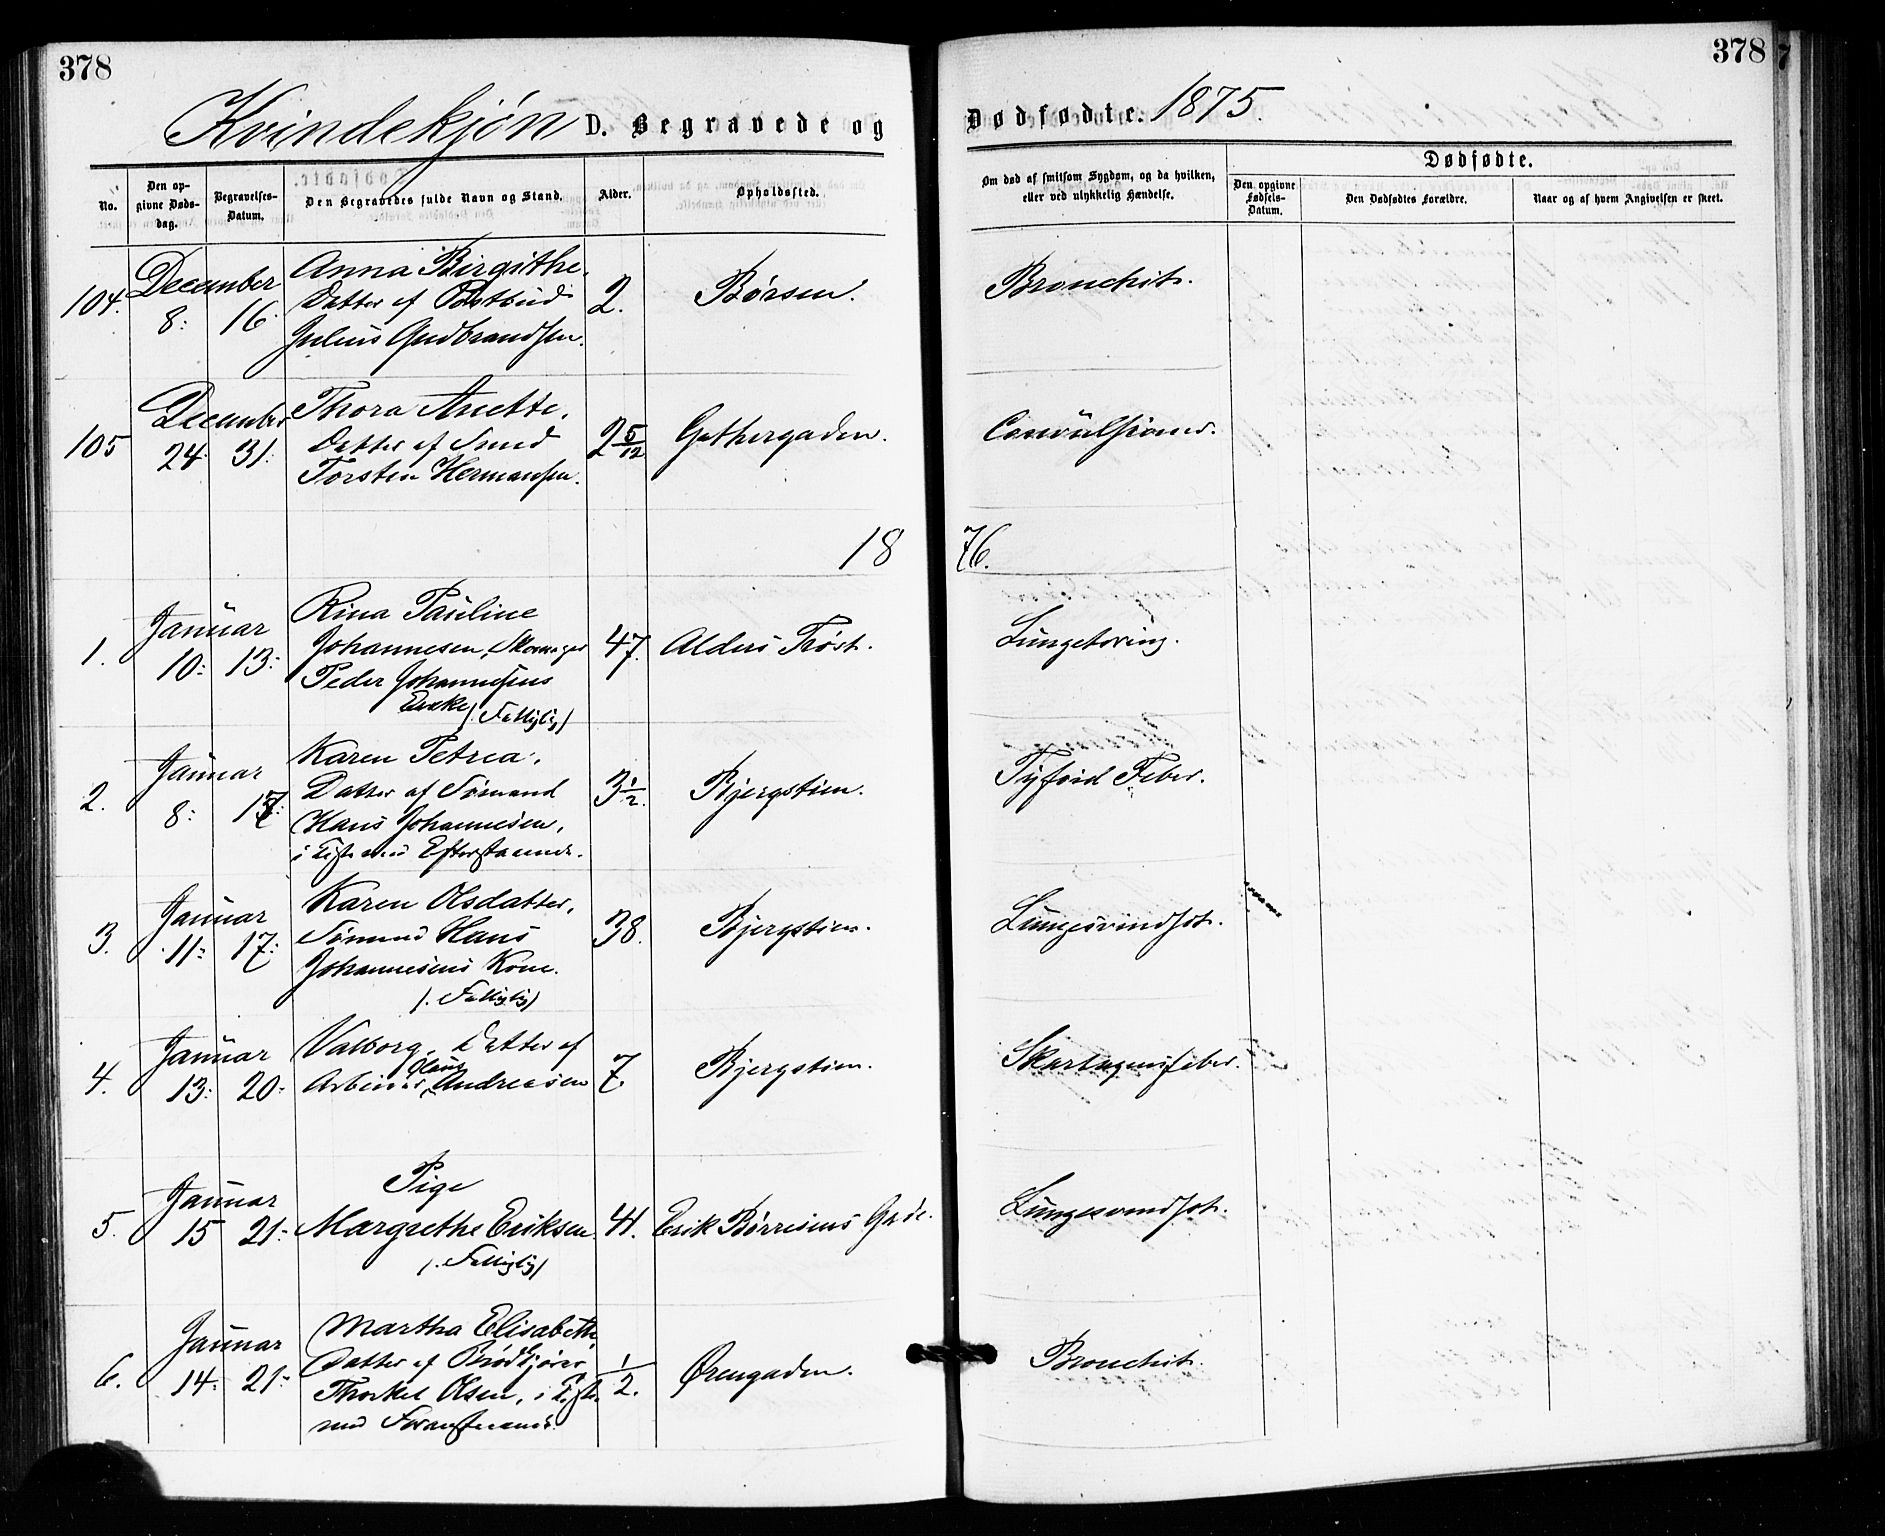 378
378
Kvindekjön D. Begravede og Dødfødte. 1875.
No.
Den opgivne Dødsdag.
Begravelses-Datum.
Den Begravedes fulde Navn og Stand.
Alder.
Opholdssted.
Om død af smitsom Sygdom, og da hvilken, eller ved ulykkelig Hændelse.
Dødfødte.
Den opgivne Fødsels-Datum.
Den Dødfødtes Forældre.
Naar og af hvem Angivelsen er skeet.
104. December 8: 16: Anna Birgithe, 2. Börsen. Bronchit.
Datter af Postbud
Julius Gudbrandsen.
105 December 24 31: Thora Anette, 2 5/12 Gothergaden. Convulsioner.
Datter af Smed
Torsten Hermansen.
1876.
1. Januar 10: 13: Rina Pauline 47. Alders Tröst. Lungetæring.
Johannesen,
Peder Johannesens
Enke (: Fattiglig)
2. Januar 8: 17: Karen Petrea, 3 1/2. Bjergstien. Tyfoid Feber.
Datter af Sömand
Hans Johannesen,
i Kiste med Efterstaaende.
3. Januar 11: 17: Karen Olsdatter, 38. Bjergstien. Lungesvindsot.
Sömand Hans
Johannesens Kone.
(: Fattiglig)
4. Januar 13: 20: Valborg, Datter af 7. Bjergstien. Skarlagensfeber.
Arbeider Hans Andreasen
5. Januar 15 21: Pige 41. Erik Börresens Gade. Lungesvindsot.
Margrethe Eriksen
(: Fattiglig)
6. Januar 14: 21: Martha Elisabeth, 1/2. Örengaden. Bronchit.
Datter af Brödkjörer
Thorkel Olsen, i Kiste
med Foranstaaende.